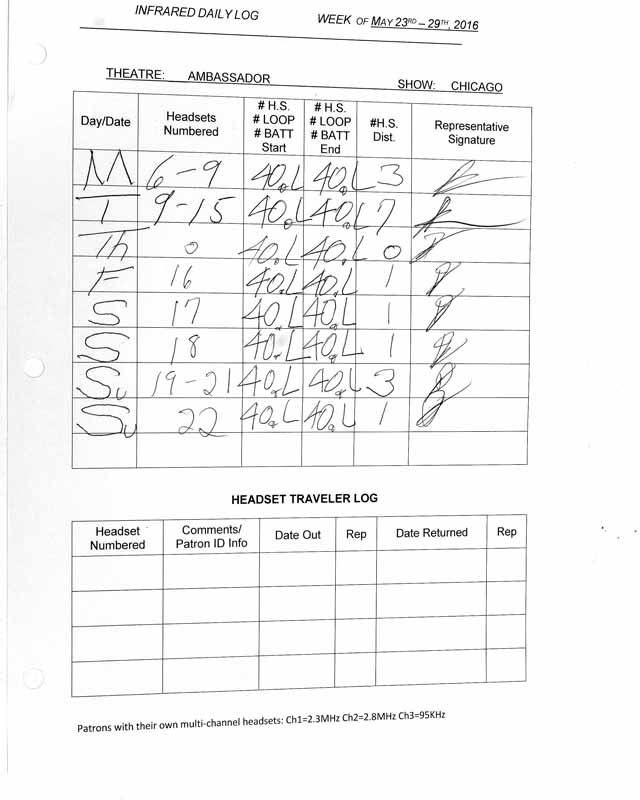 INFRARED DAILY LOG WEEK OF MAY 23RD – 29TH, 2016
THEATRE: AMBASSADOR SHOW: CHICAGO
Day/Date Headsets Numbered # H.S. # LOOP # BATT Start # H.S. # LOOP # BATT End #H.S. Dist. Representative Signature
M 6-9 40 L 40 L 3
T 9-15 40 L 40 L 7
Th 0 40 L 40 L 0
F 16 40 L 40 L 1
S 17 40 L 40 L 1
S 18 40 L 40 L 1
Su 19-21 40 L 40 L 3
Su 22 40 L 40 L 1
HEADSET TRAVELER LOG
Headset Numbered Comments/ Patron ID Info Date Out Rep Date Returned Rep
Patrons with their own multi-channel headsets: Ch1=2.3MHz Ch2=2.8MHz Ch3=95KHz